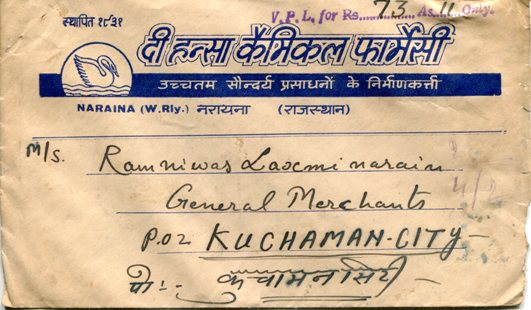 स्थापित १९३१
V.P.L. for Rs. 73 As. 11 Only.
दी हन्सा कैमिकल फार्मेसी
उच्चतम सौन्दर्य प्रसाधनों के निर्माणकर्त्ता
NARAINA (W.Rly.) नरायना (राजस्थान)
M/s. Ramniwas Laxminarain
General Merchants
P.O. KUCHAMAN-CITY-
पो:- कुचामन सिटी -